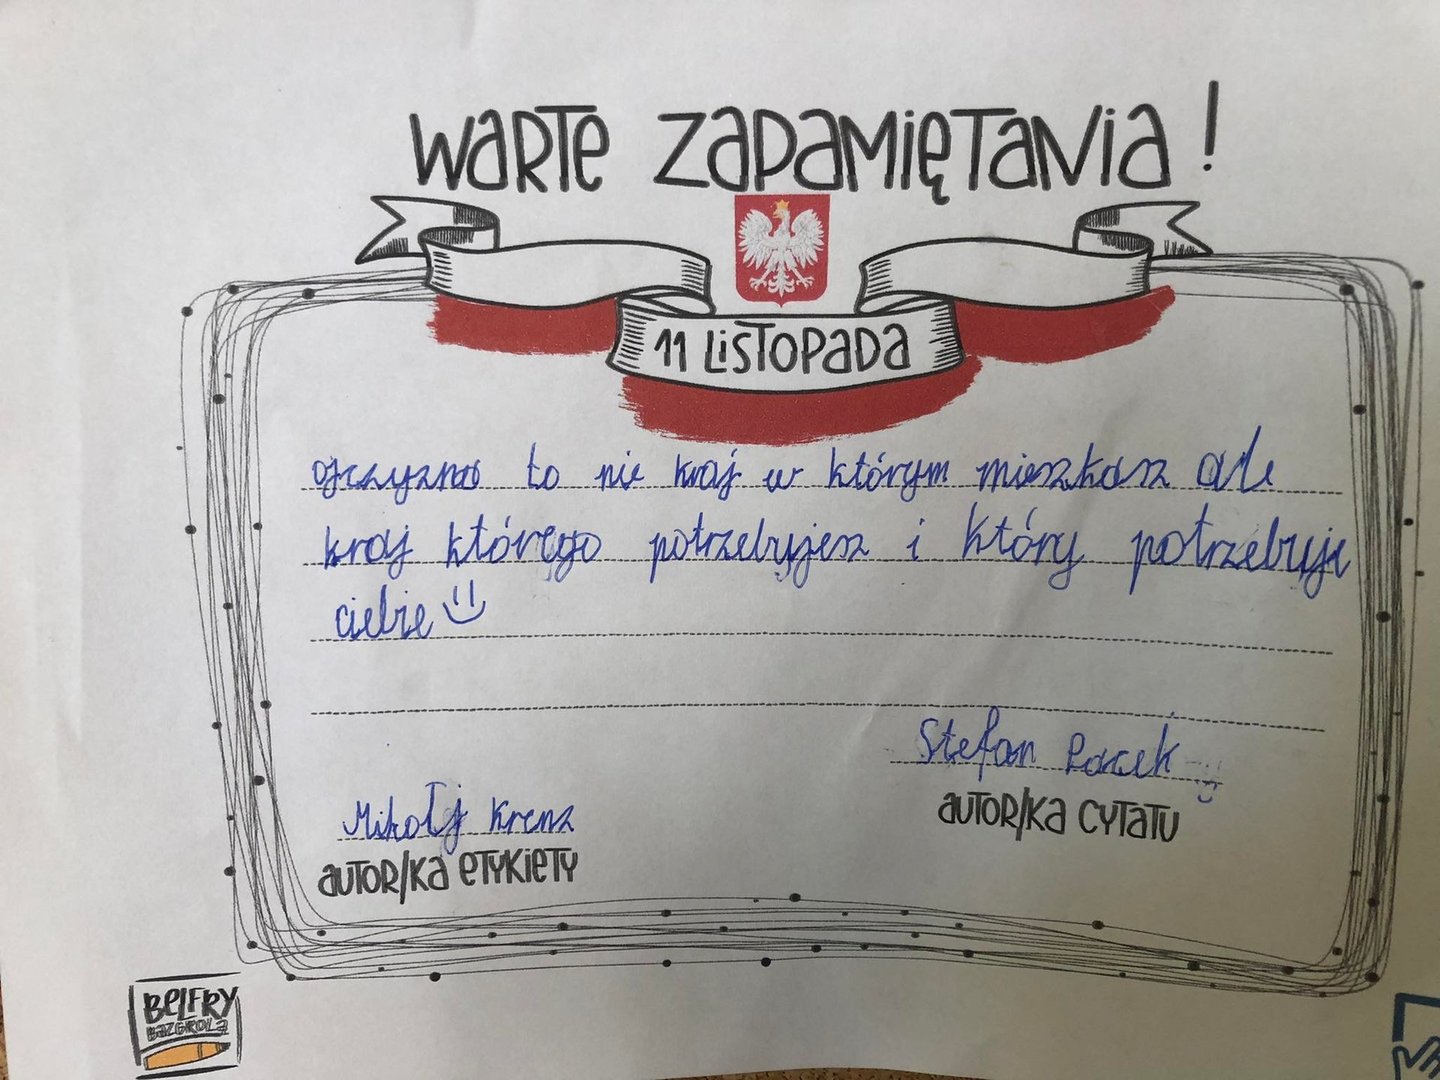 WARTE ZAPAMIĘTANIA!
11 LISTOPADA
ojczyzna to nie kraj w którym mieszkasz ale
kraj którego potrzebujesz i który potrzebuje
ciebie
Stefan Pacek
AUTOR/KA CYTATU
Mikołj Krenz
AUTOR/KA ETYKIETY
BELFRY
BAZGROLĄ